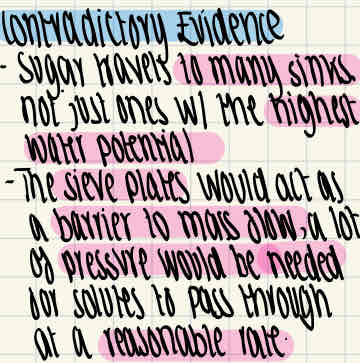 Contradictory Evidence
- Sugar travels to many sinks
not just ones w/ the highest
water potential
- The sieve plates would act as
a barrier to mass flow, a lot
of pressure would be needed
for solutes to pass through
at a reasonable rate.